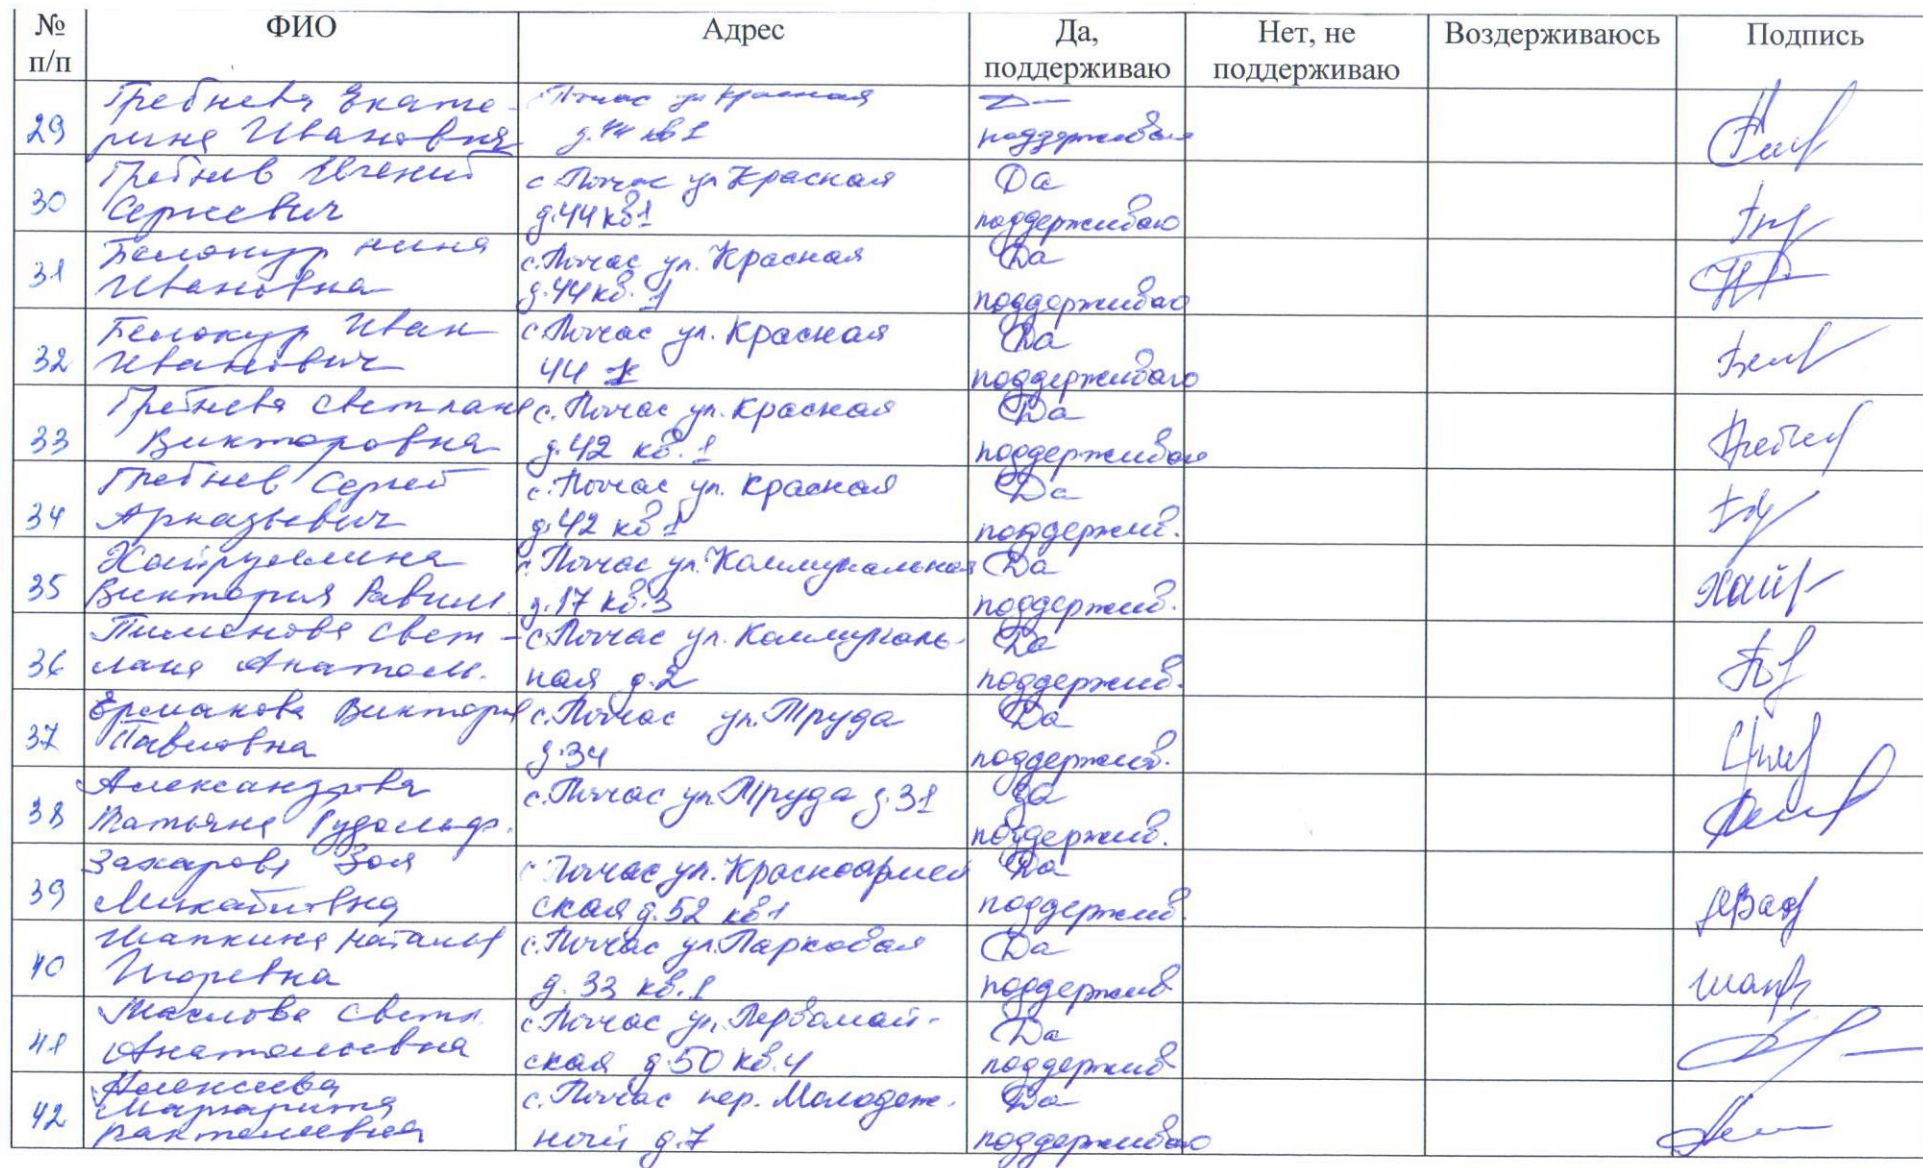 № п/п ФИО Адрес Да, поддерживаю Нет, не поддерживаю Воздерживаюсь Подпись
29 Гребнева Екате-
рина Ивановна
ул Красная
д.44 кв 1
Да поддерживаю
30 Гребнев Евгений
Сергеевич
с. Пычас ул Красная
д.44 кв1
Да
поддерживаю
31 Белокур Нина
Ивановна
с. Пычас ул. Красная
д.44 кв. 1
Да
поддерживаю
32 Белокур Иван
Иванович
с. Пычас ул. Красная
44
Да
поддерживаю
33 Гребнева Светлана
Викторовна
с. Пычас ул. Красная
д.42 кв. 1
Да
поддерживаю
34 Гребнев Сергей
Аркадьевич
с. Пычас ул. Красная
д.42 кв 1
Да
поддержив.
35 Хайруллина
Виктория Равил.
с. Пычас ул. Коммунальная
д.17 кв.3
Да
поддержив.
Хайр
36 Пименова Свет-
лана Анатол.
с. Пычас ул. Коммуналь-
ная д.2
Да
поддержив.
37 Ермакова Виктория
Павловна
с. Пычас ул. Труда
д.34
Да
поддержив.
38 Александрова
Татьяна Рудольф.
с. Пычас ул Труда д.31
Да
поддержив.
39 Захарова Зоя
с. Пычас ул. Красноармей
ская д.52 кв1
Да
поддержив.
40 Шапкина Наталья
Игоревна
с. Пычас ул. Парковая
д. 33 кв.1
Да
поддержив
41 Маслова Светл.
Анатольевна
с. Пычас ул. Первомай-
ская д.50 кв.4
Да
поддержив
42 Алексеева
Маргарита
с. Пычас пер. Молодеж-
ный д.7
Да
поддерживаю